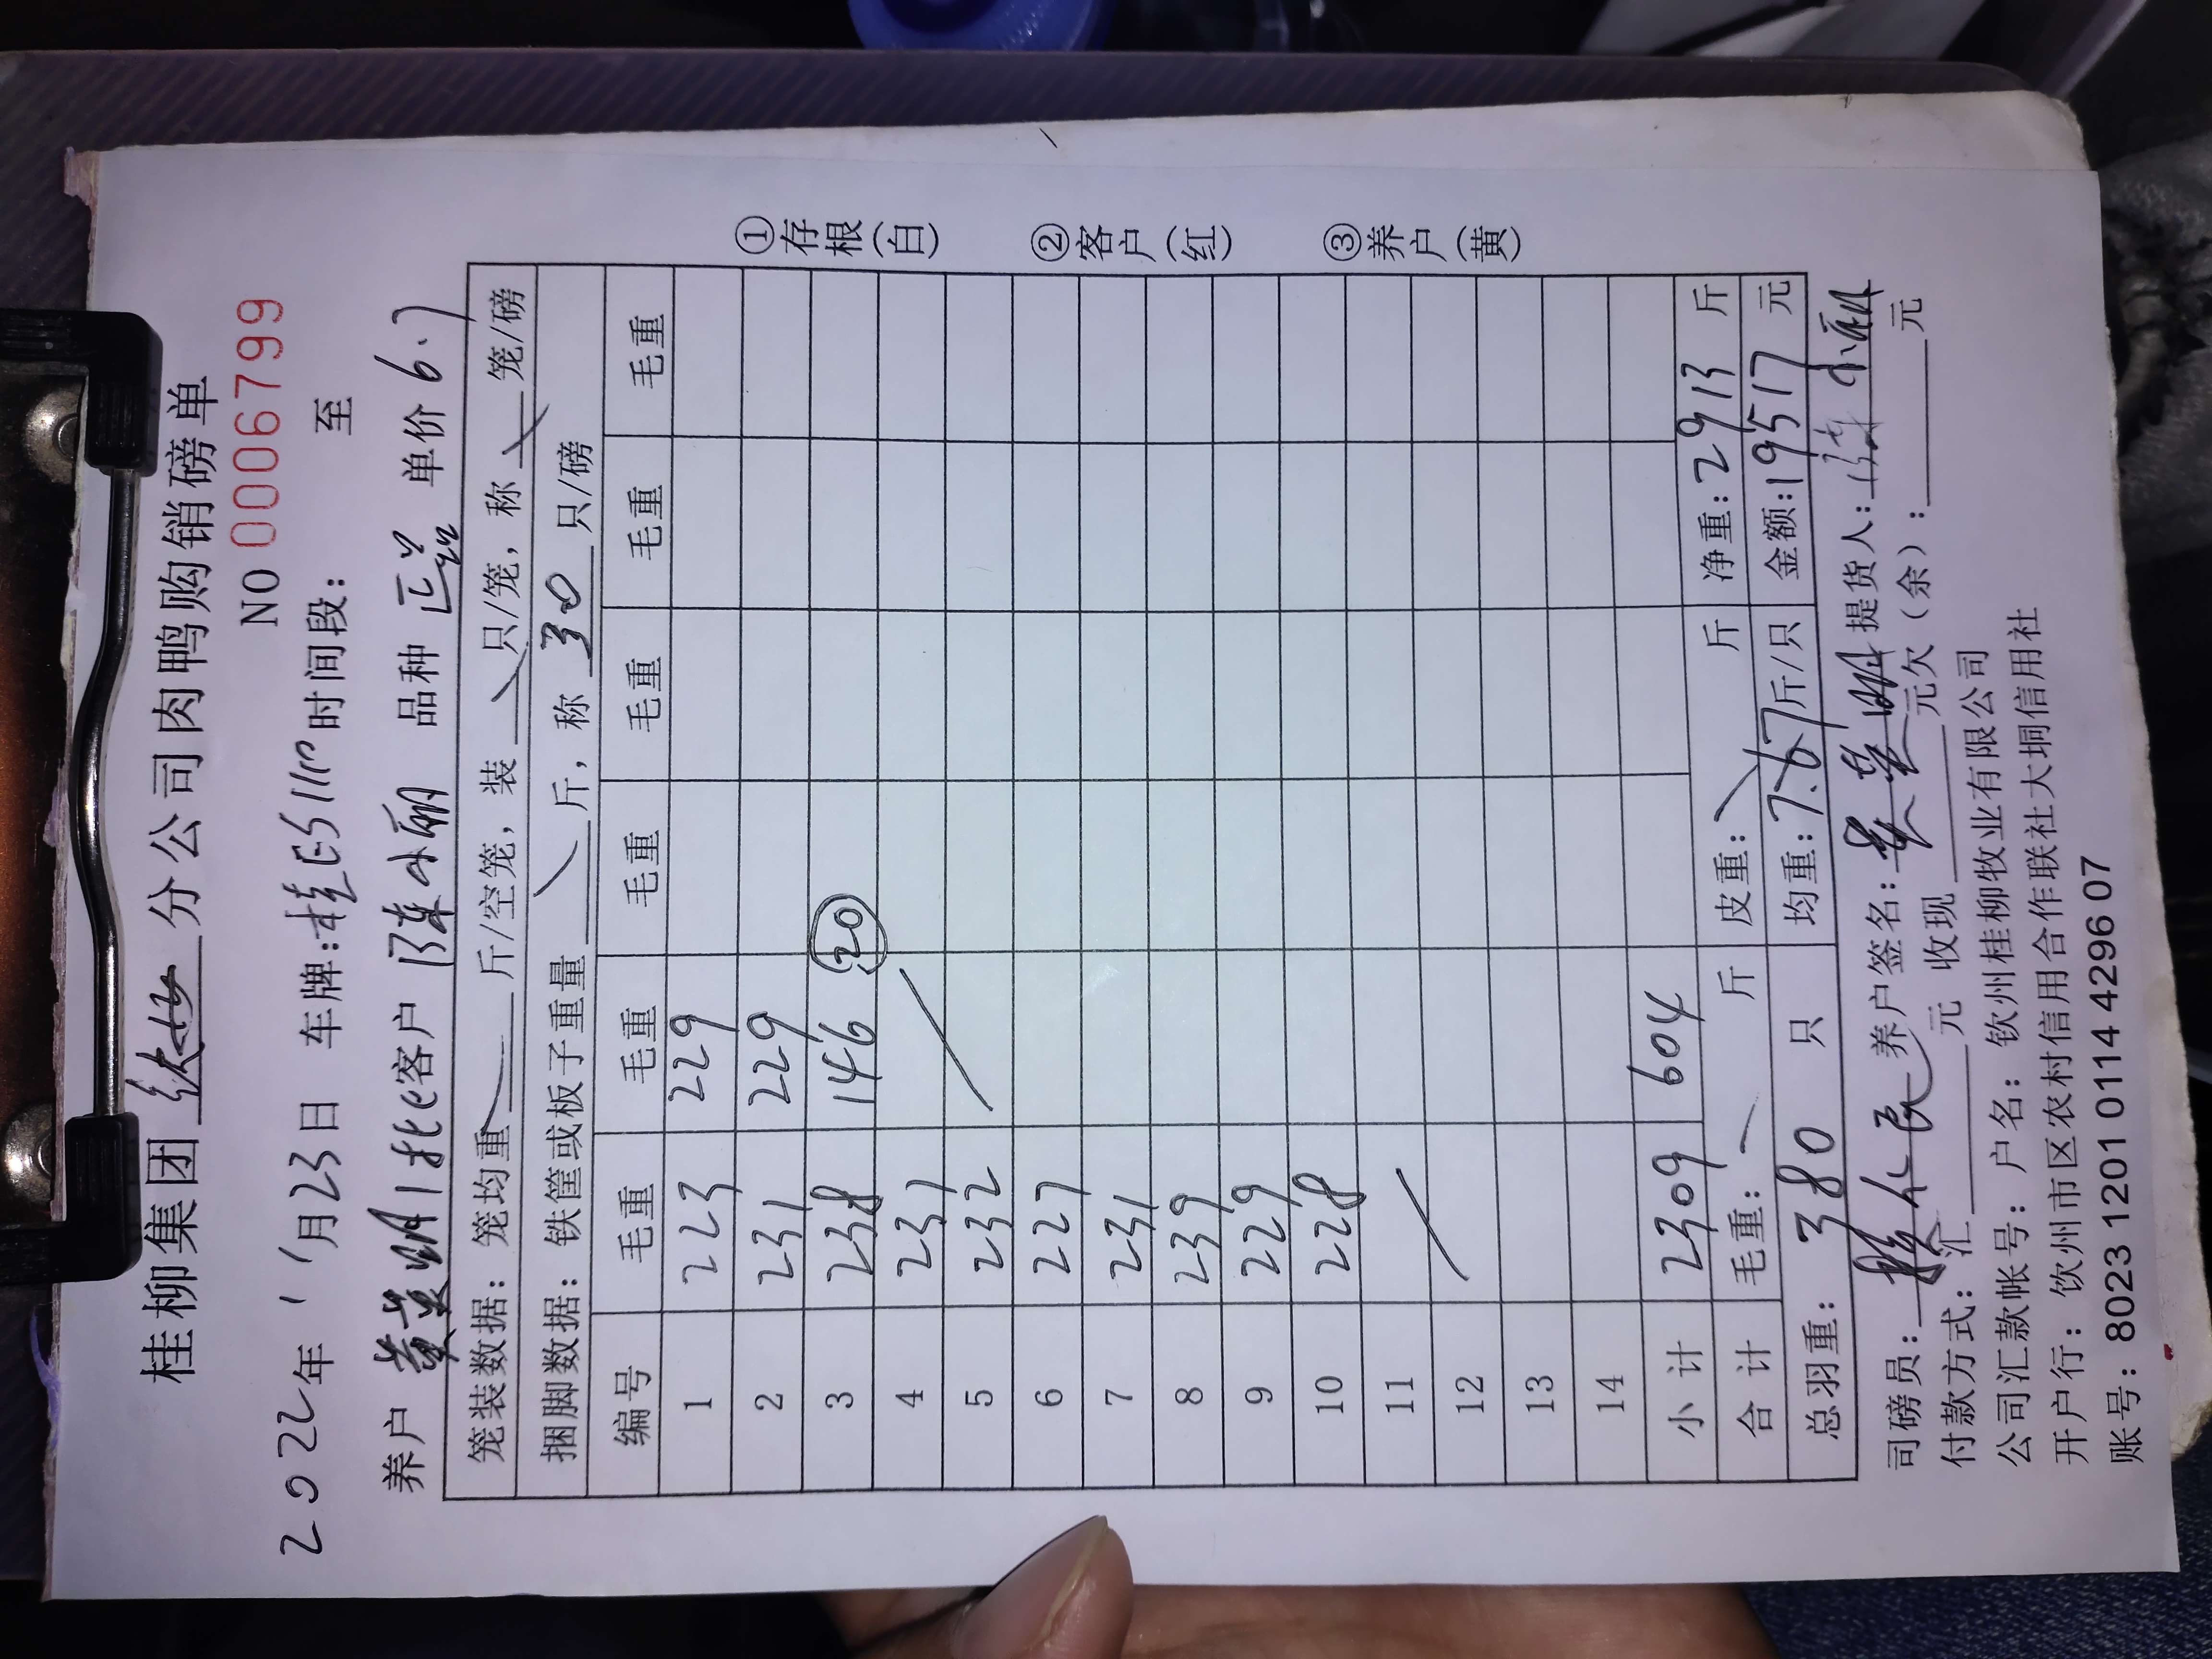 桂柳集团 分公司肉鸭购销磅单
NO 0006799
2022年1月23日 车牌:桂E5110 时间段: 至
养户 客户 陈小丽 品种 单价 6.7
笼装数据: 笼均重 斤/空笼, 装 只/笼, 称 笼/磅
捆脚数据: 铁筐或板子重量 斤, 称 30 只/磅
编号 毛重 毛重 毛重 毛重 毛重 毛重
1 223 229
2 231 229
3 238 146 20
4 231
5 232
6 227
7 231
8 239
9 229
10 228
11
12
13
14
小计 2309 604
合计 毛重: 斤 皮重: 斤 净重: 2913 斤
总羽重: 380 只 均重: 7.67 斤/只 金额: 19517 元
①存根(白)
②客户(红)
③养户(黄)
司磅员: 养户签名: 提货人: 陈小丽
付款方式: 汇 元 收现 元欠(余): 元
公司汇款帐号: 户名: 钦州桂柳牧业有限公司
开户行: 钦州市区农村信用合作联社大垌信用社
账号: 8023 1201 0114 4296 07